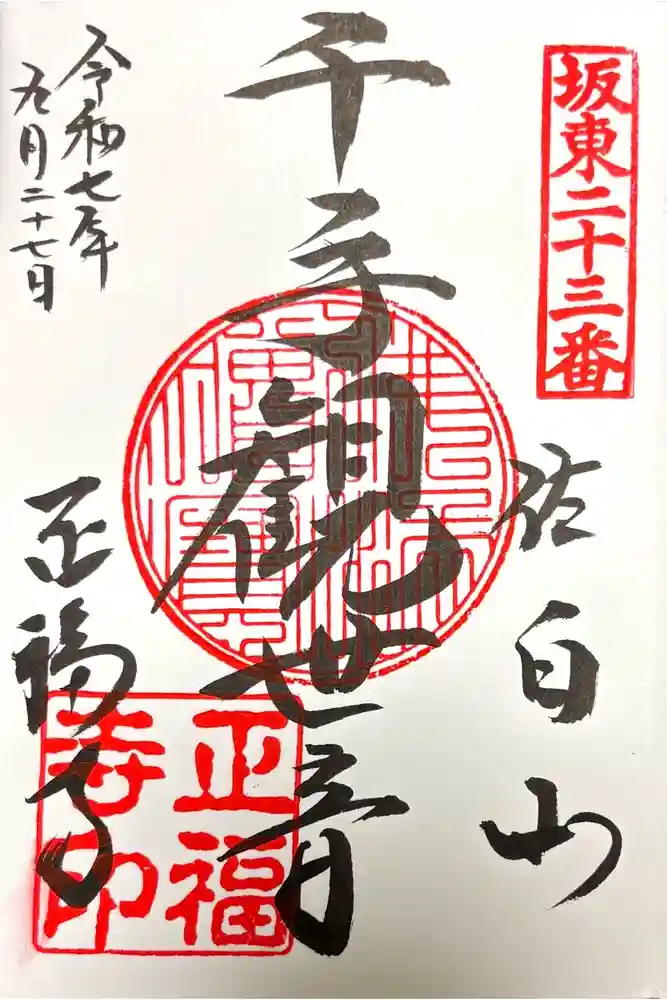 坂東二十三番
佐白山
千手觀世音
正福寺
正福寺印
令和七年
九月二十七日